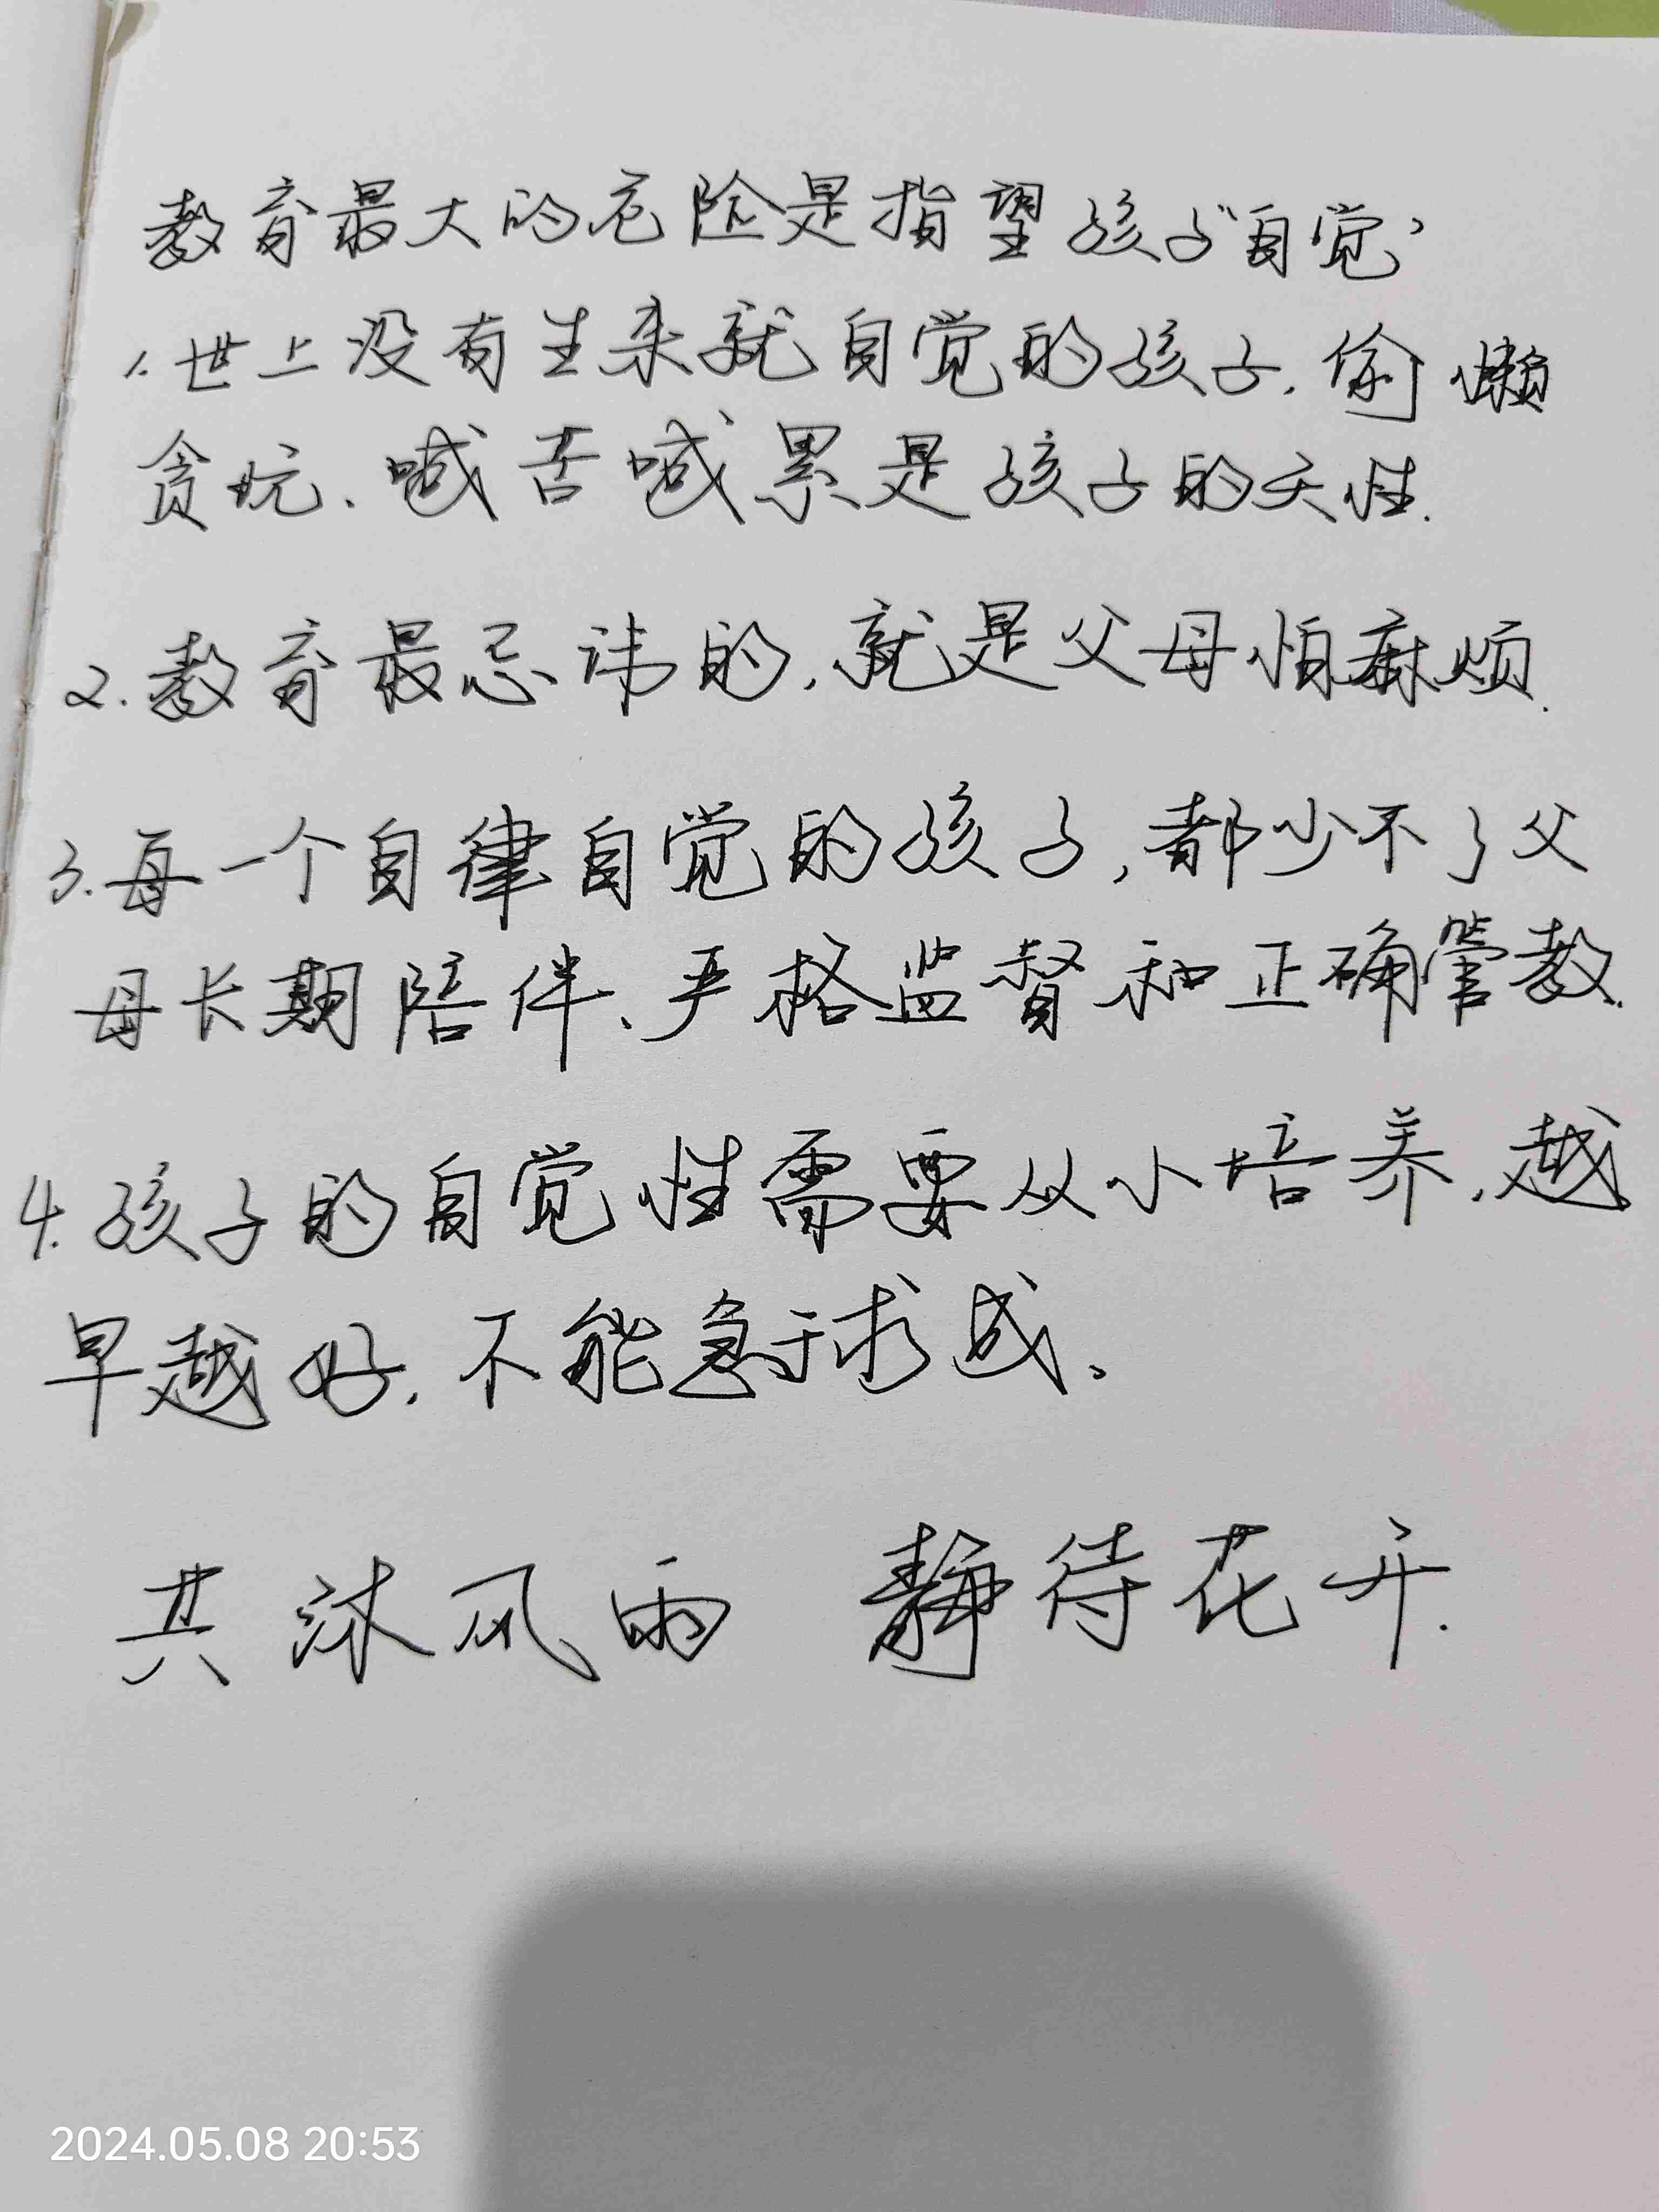 教育最大的危险是指望孩子“自觉”
1.世上没有生来就自觉的孩子.偷懒
贪玩、喊苦喊累是孩子的天性.
2.教育最忌讳的,就是父母怕麻烦.
3.每一个自律自觉的孩子,都少不了父
母长期陪伴、严格监督和正确管教.
4.孩子的自觉性需要从小培养,越
早越好.不能急于求成、
共沐风雨 静待花开.
2024.05.08 20:53